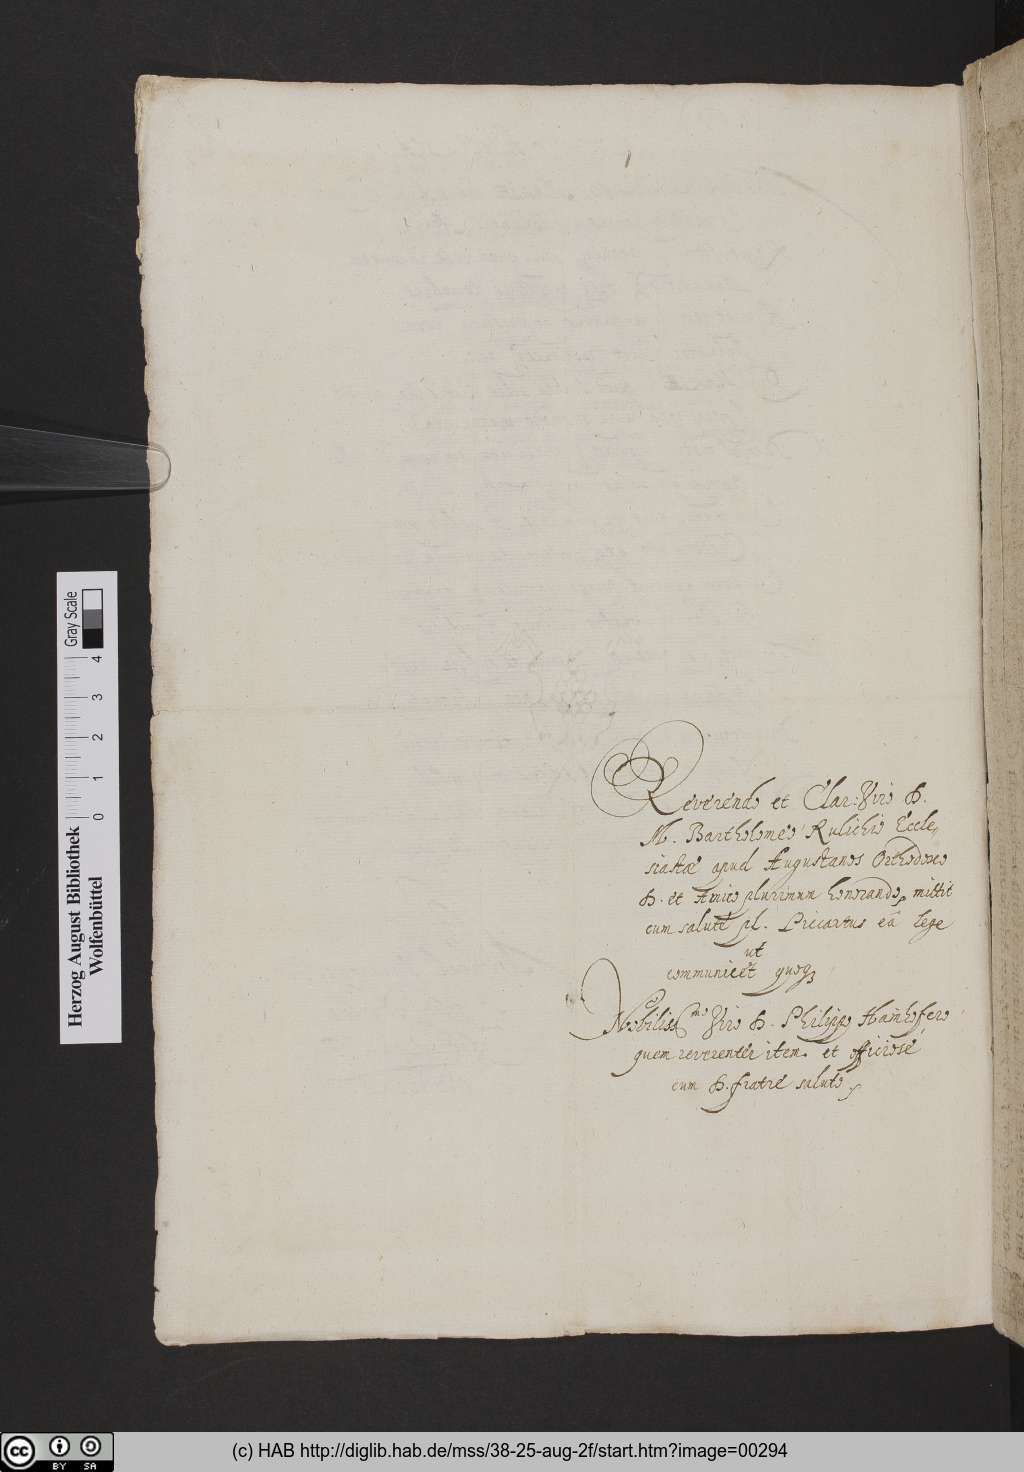 Reverendo et Clar: Viro D.
M. Bartholomeo Rulichio Eccle,
siastæ apud Augustanos Orthodoxo
D. et Amico plurimum honorando, mittit
cum salute pl. Piccartus eâ lege
ut
communicet quoq3
Nobiliss.mo Viro D. Philippo Hainhofero
quem reverenter item et officiosè
cum D. fratre saluto,
Herzog August Bibliothek
Wolfenbüttel
0 1 2 3 4
Gray Scale
(c) HAB http://diglib.hab.de/mss/38-25-aug-2f/start.htm?image=00294
cc BY SA